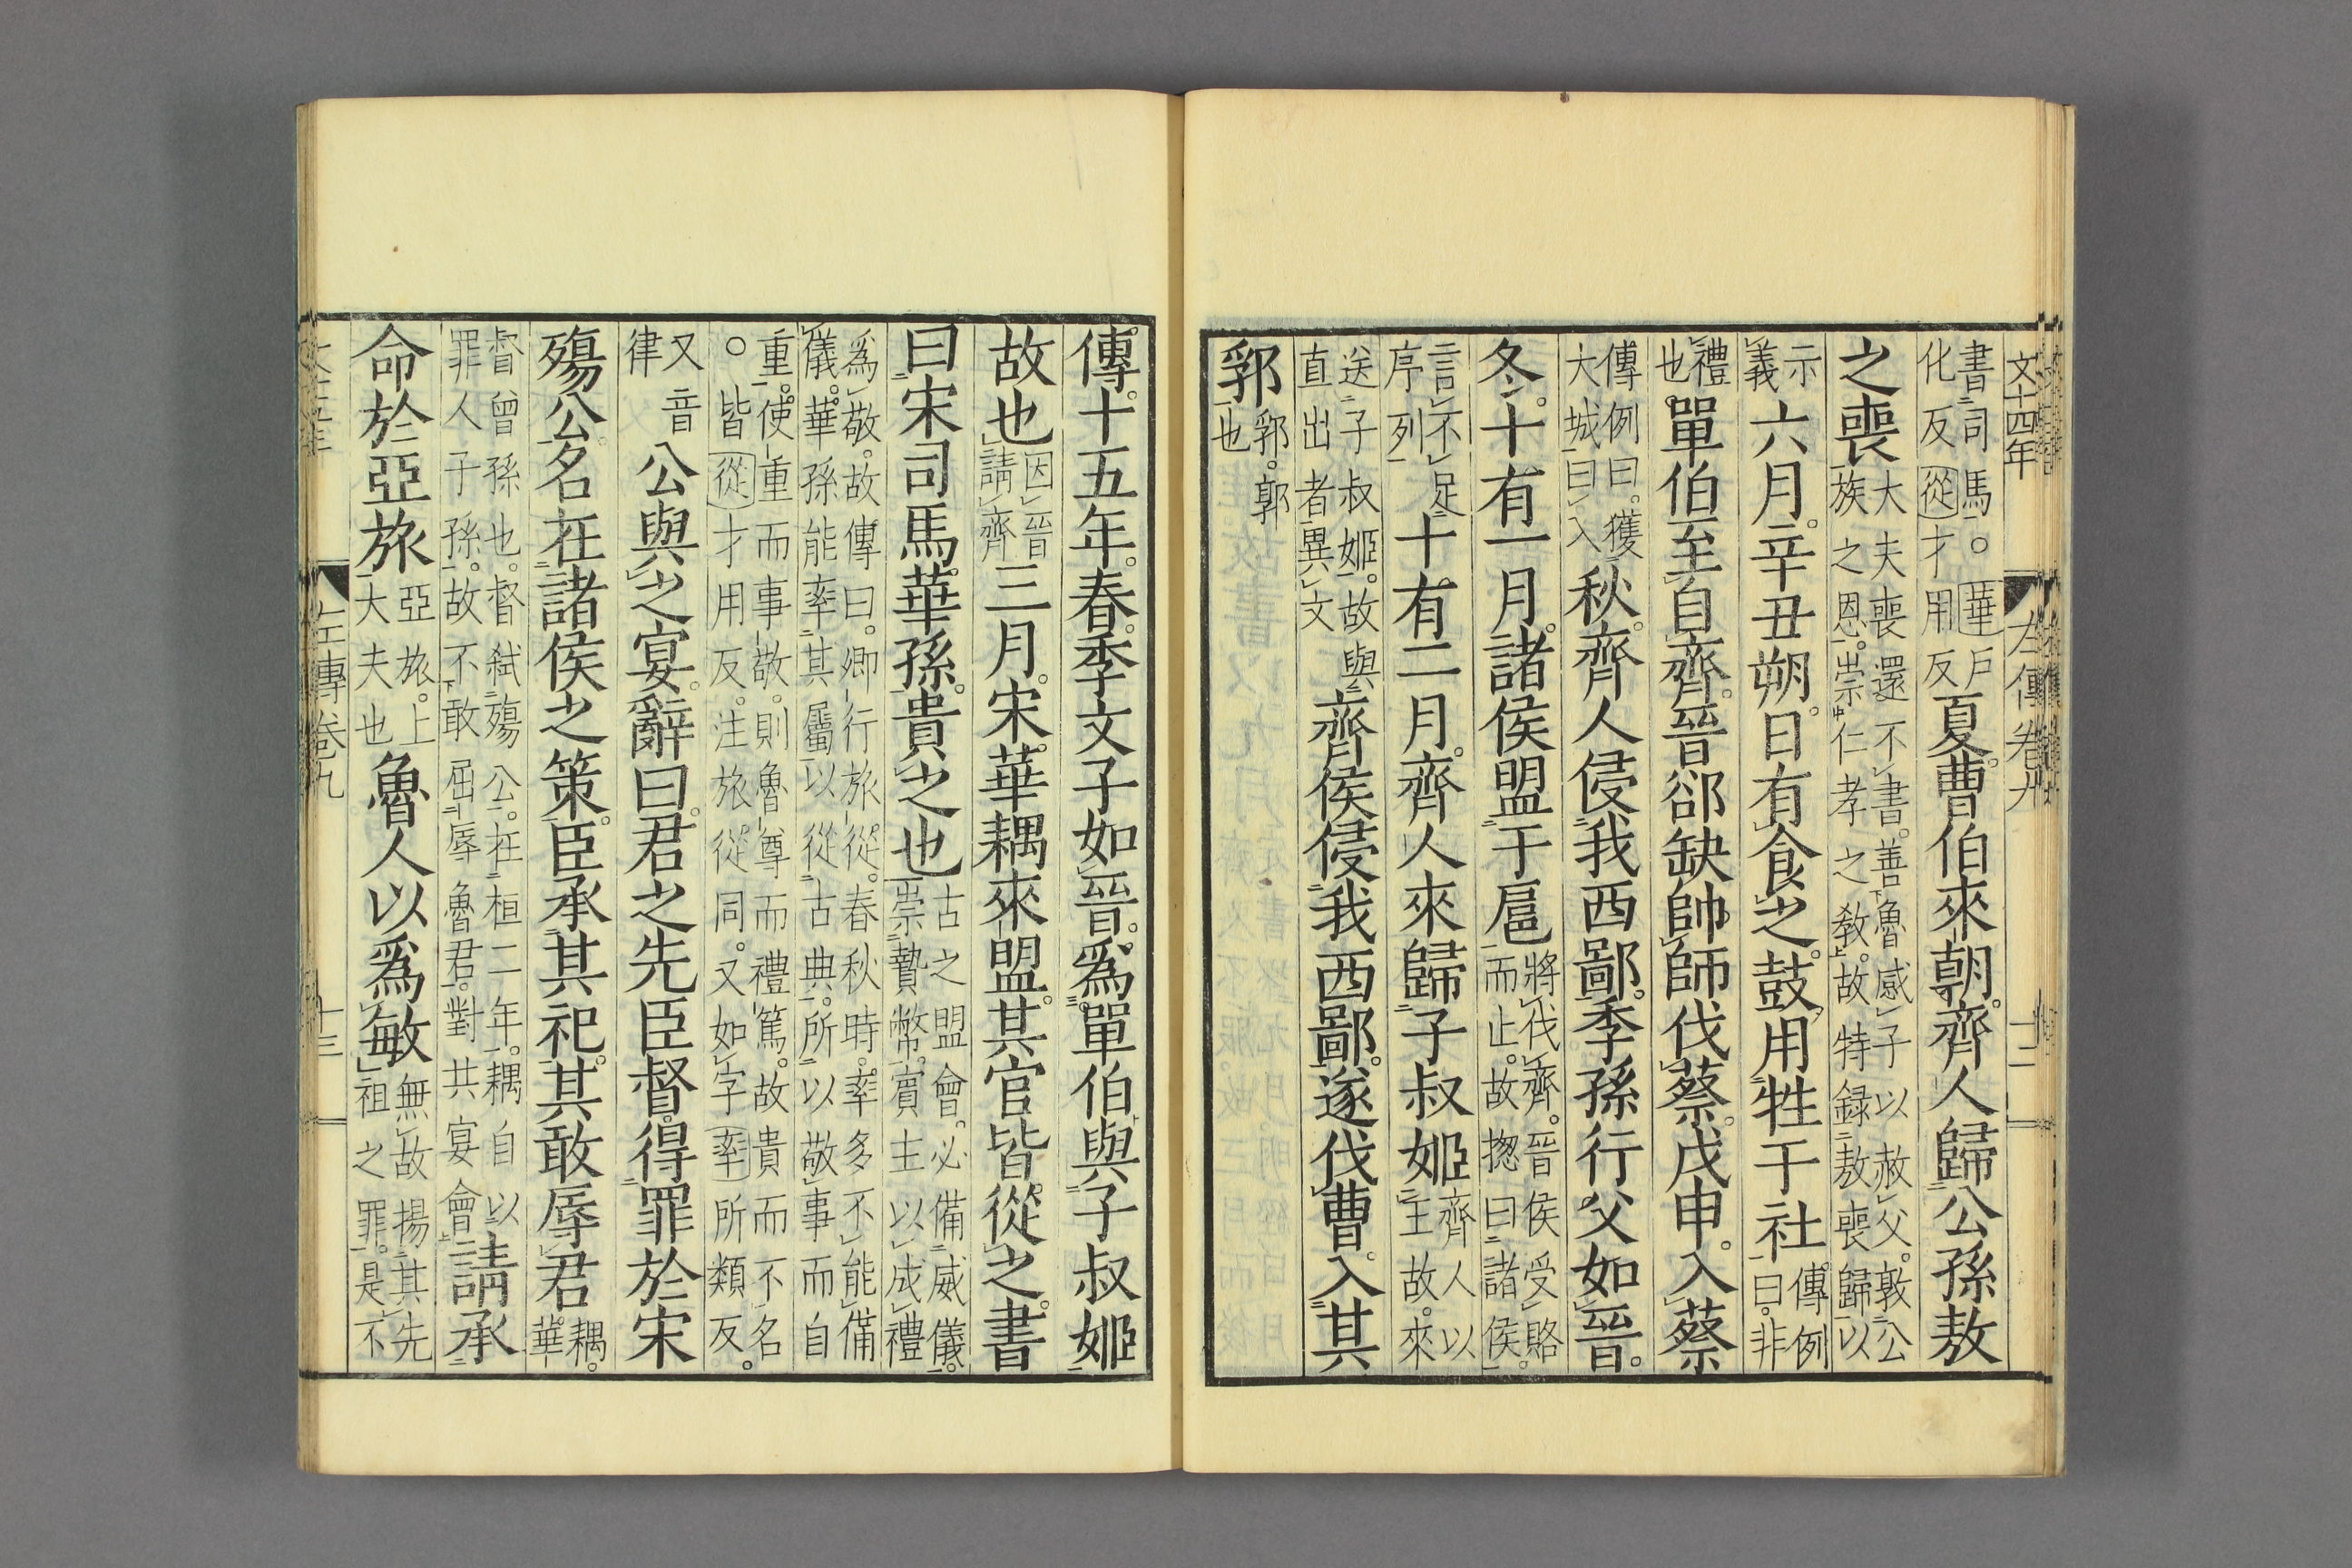 文十四年　左傳卷九　十二
書司馬。華戶化反從才用反夏曹伯來朝。齊人歸公孫敖
之喪大夫喪還不書。善魯感子以赦父。敦公族之恩。崇仁孝之教。故特録敖喪歸以
示義六月。辛丑朔。日有食之。鼓用牲于社傳例曰。非
禮也。單伯至自齊。晉郤缺帥師伐蔡。戊申。入蔡
傳例曰。獲大城曰入秋。齊人侵我西鄙。季孫行父如晉。
冬。十有一月。諸侯盟于扈將伐齊。晉侯受賂而止。故揔曰諸侯。
言不足序列十有二月。齊人來歸子叔姬齊人以王故。來
送子叔姬。故與直出者異文齊侯侵我西鄙。遂伐曹。入其
郛郛。郭也
傳。十五年。春。季文子如晉。爲單伯與子叔姬
故也因晉請齊三月。宋華耦來盟。其官皆從之。書
曰宋司馬華孫。貴之也古之盟會。必備威儀。崇贄幣。賓主以成禮
爲敬。故傳曰。卿行旅從。春秋時。率多不能備儀。華孫能率其屬以從古典。所以敬事而自
重。使重而事敬。則魯尊而禮篤。故貴而不名。皆從才用反。注旅從同。又如字率所類反。
又音律公與之宴。辭曰。君之先臣督。得罪於宋
殤公。名在諸侯之策。臣承其祀。其敢辱君耦。華
督曾孫也。督弑殤公。在桓二年。耦自以罪人子孫。故不敢屈辱魯君。對共宴會請承
命於亞旅亞旅。上大夫也魯人以爲敏無故揚其先祖之罪。是不
左傳卷九　十三